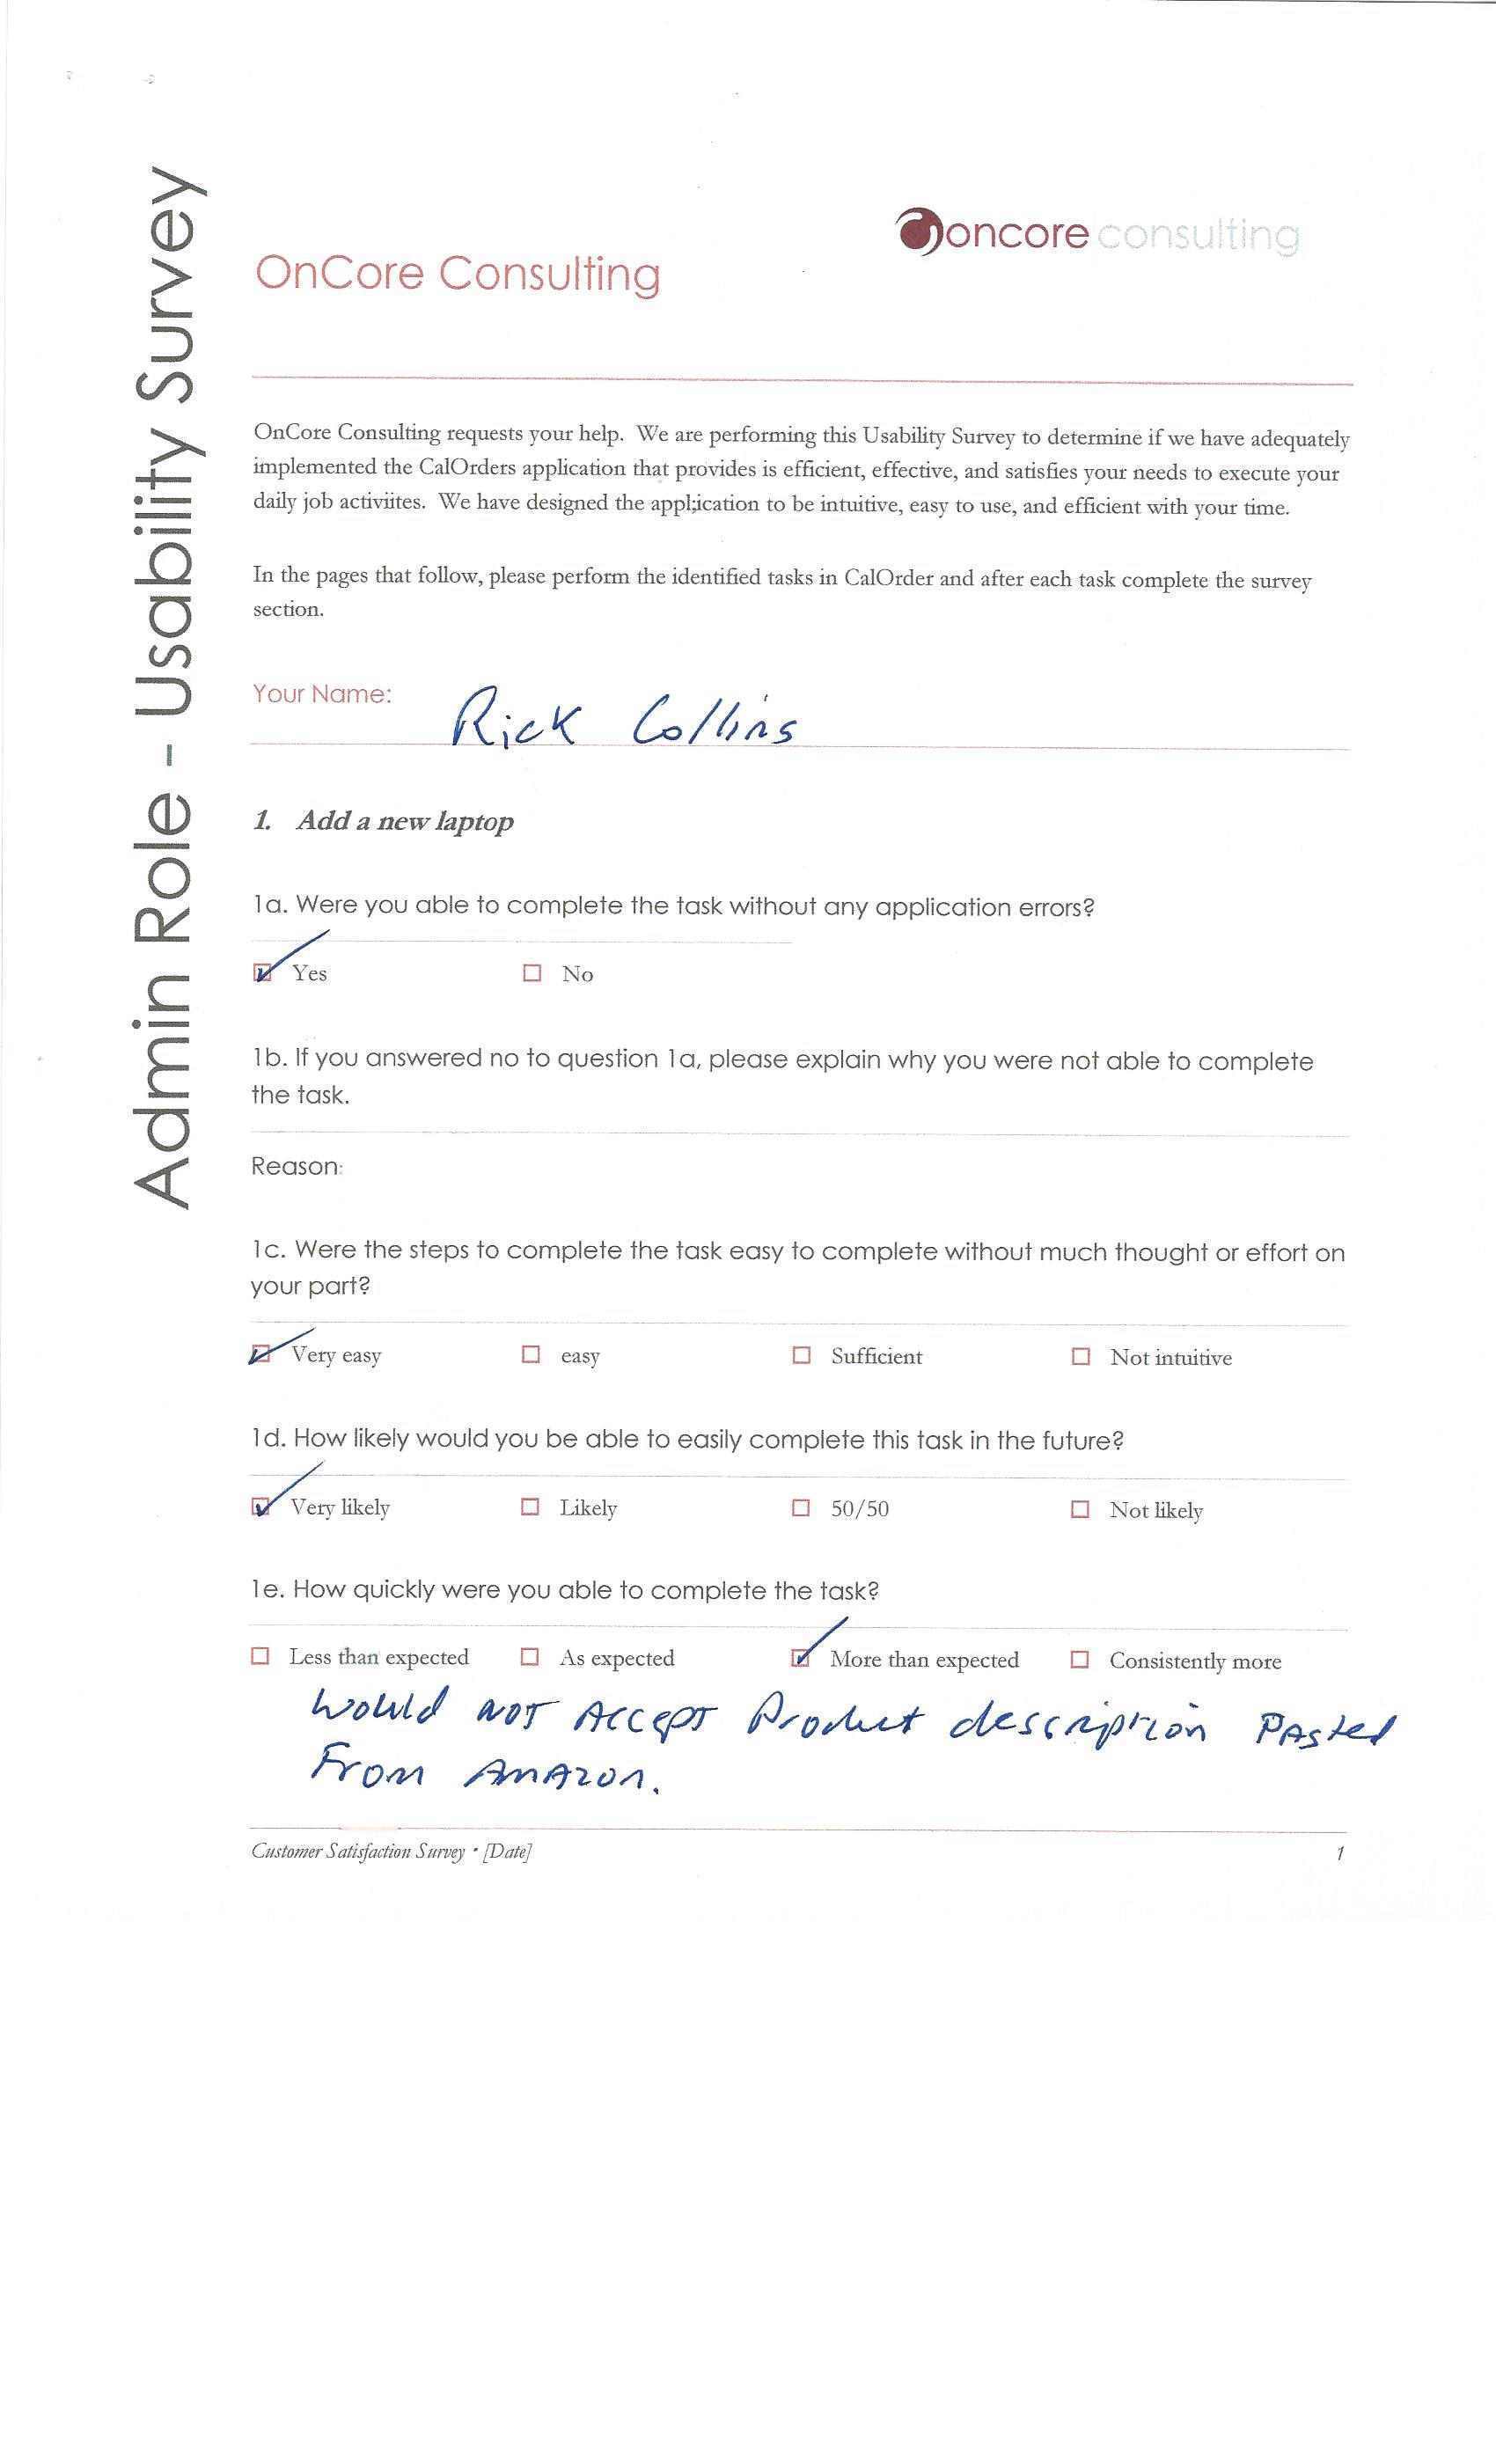 Admin Role - Usability Survey
oncore consulting
OnCore Consulting
OnCore Consulting requests your help.  We are performing this Usability Survey to determine if we have adequately
implemented the CalOrders application that provides is efficient, effective, and satisfies your needs to execute your
daily job activiites.  We have designed the appl;ication to be intuitive, easy to use, and efficient with your time.
In the pages that follow, please perform the identified tasks in CalOrder and after each task complete the survey
section.
Your Name: Rick Collins
1. Add a new laptop
1a. Were you able to complete the task without any application errors?
☑ Yes ☐ No
1b. If you answered no to question 1a, please explain why you were not able to complete
the task.
Reason:
1c. Were the steps to complete the task easy to complete without much thought or effort on
your part?
☑ Very easy ☐ easy ☐ Sufficient ☐ Not intuitive
1d. How likely would you be able to easily complete this task in the future?
☑ Very likely ☐ Likely ☐ 50/50 ☐ Not likely
1e. How quickly were you able to complete the task?
☐ Less than expected ☐ As expected ☑ More than expected ☐ Consistently more
Would NOT ACCEPT Product description PASted
From AmAzon.
Customer Satisfaction Survey • [Date] 1